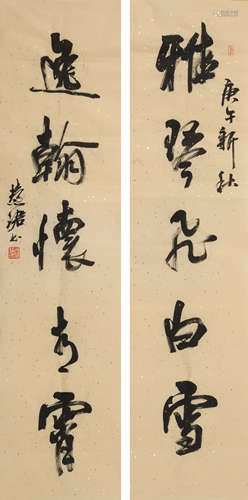 雅琴飛白雪
庚午新秋
逸翰懷青霄